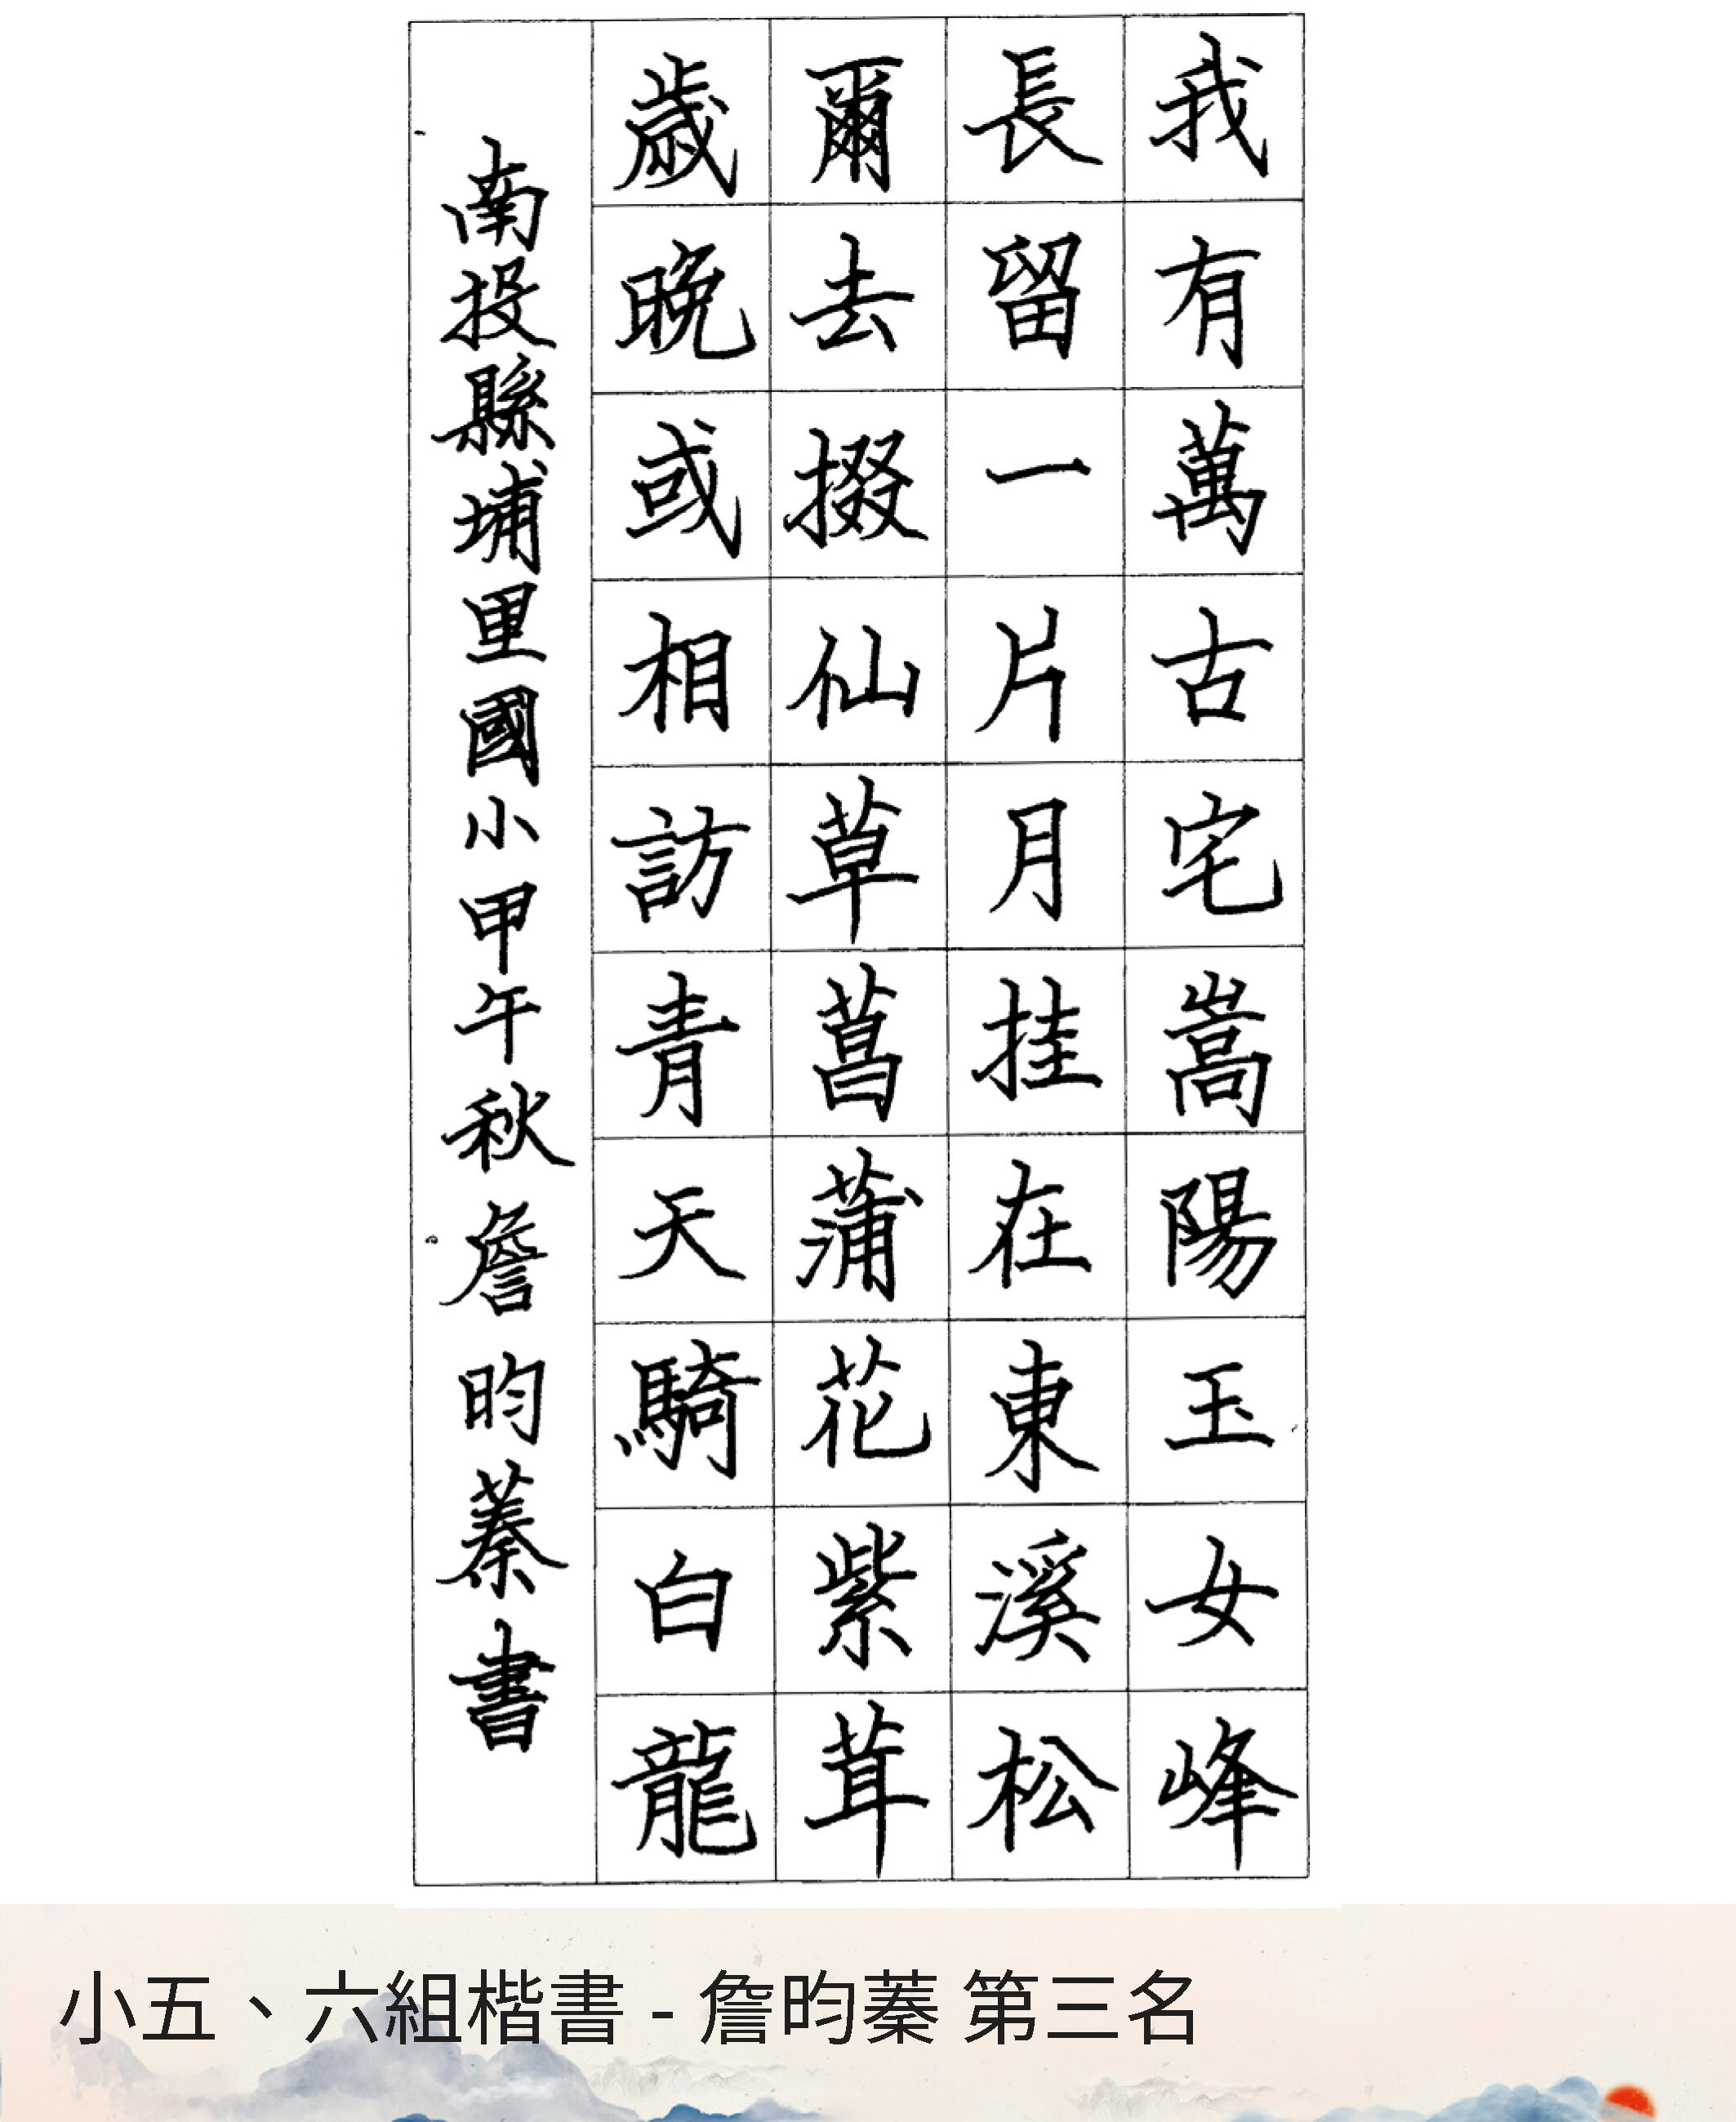 我有萬古宅嵩陽玉女峰
長留一片月挂在東溪松
爾去掇仙草菖蒲花紫茸
歲晚或相訪青天騎白龍
南投縣埔里國小甲午秋詹昀蓁書
小五、六組楷書 - 詹昀蓁 第三名